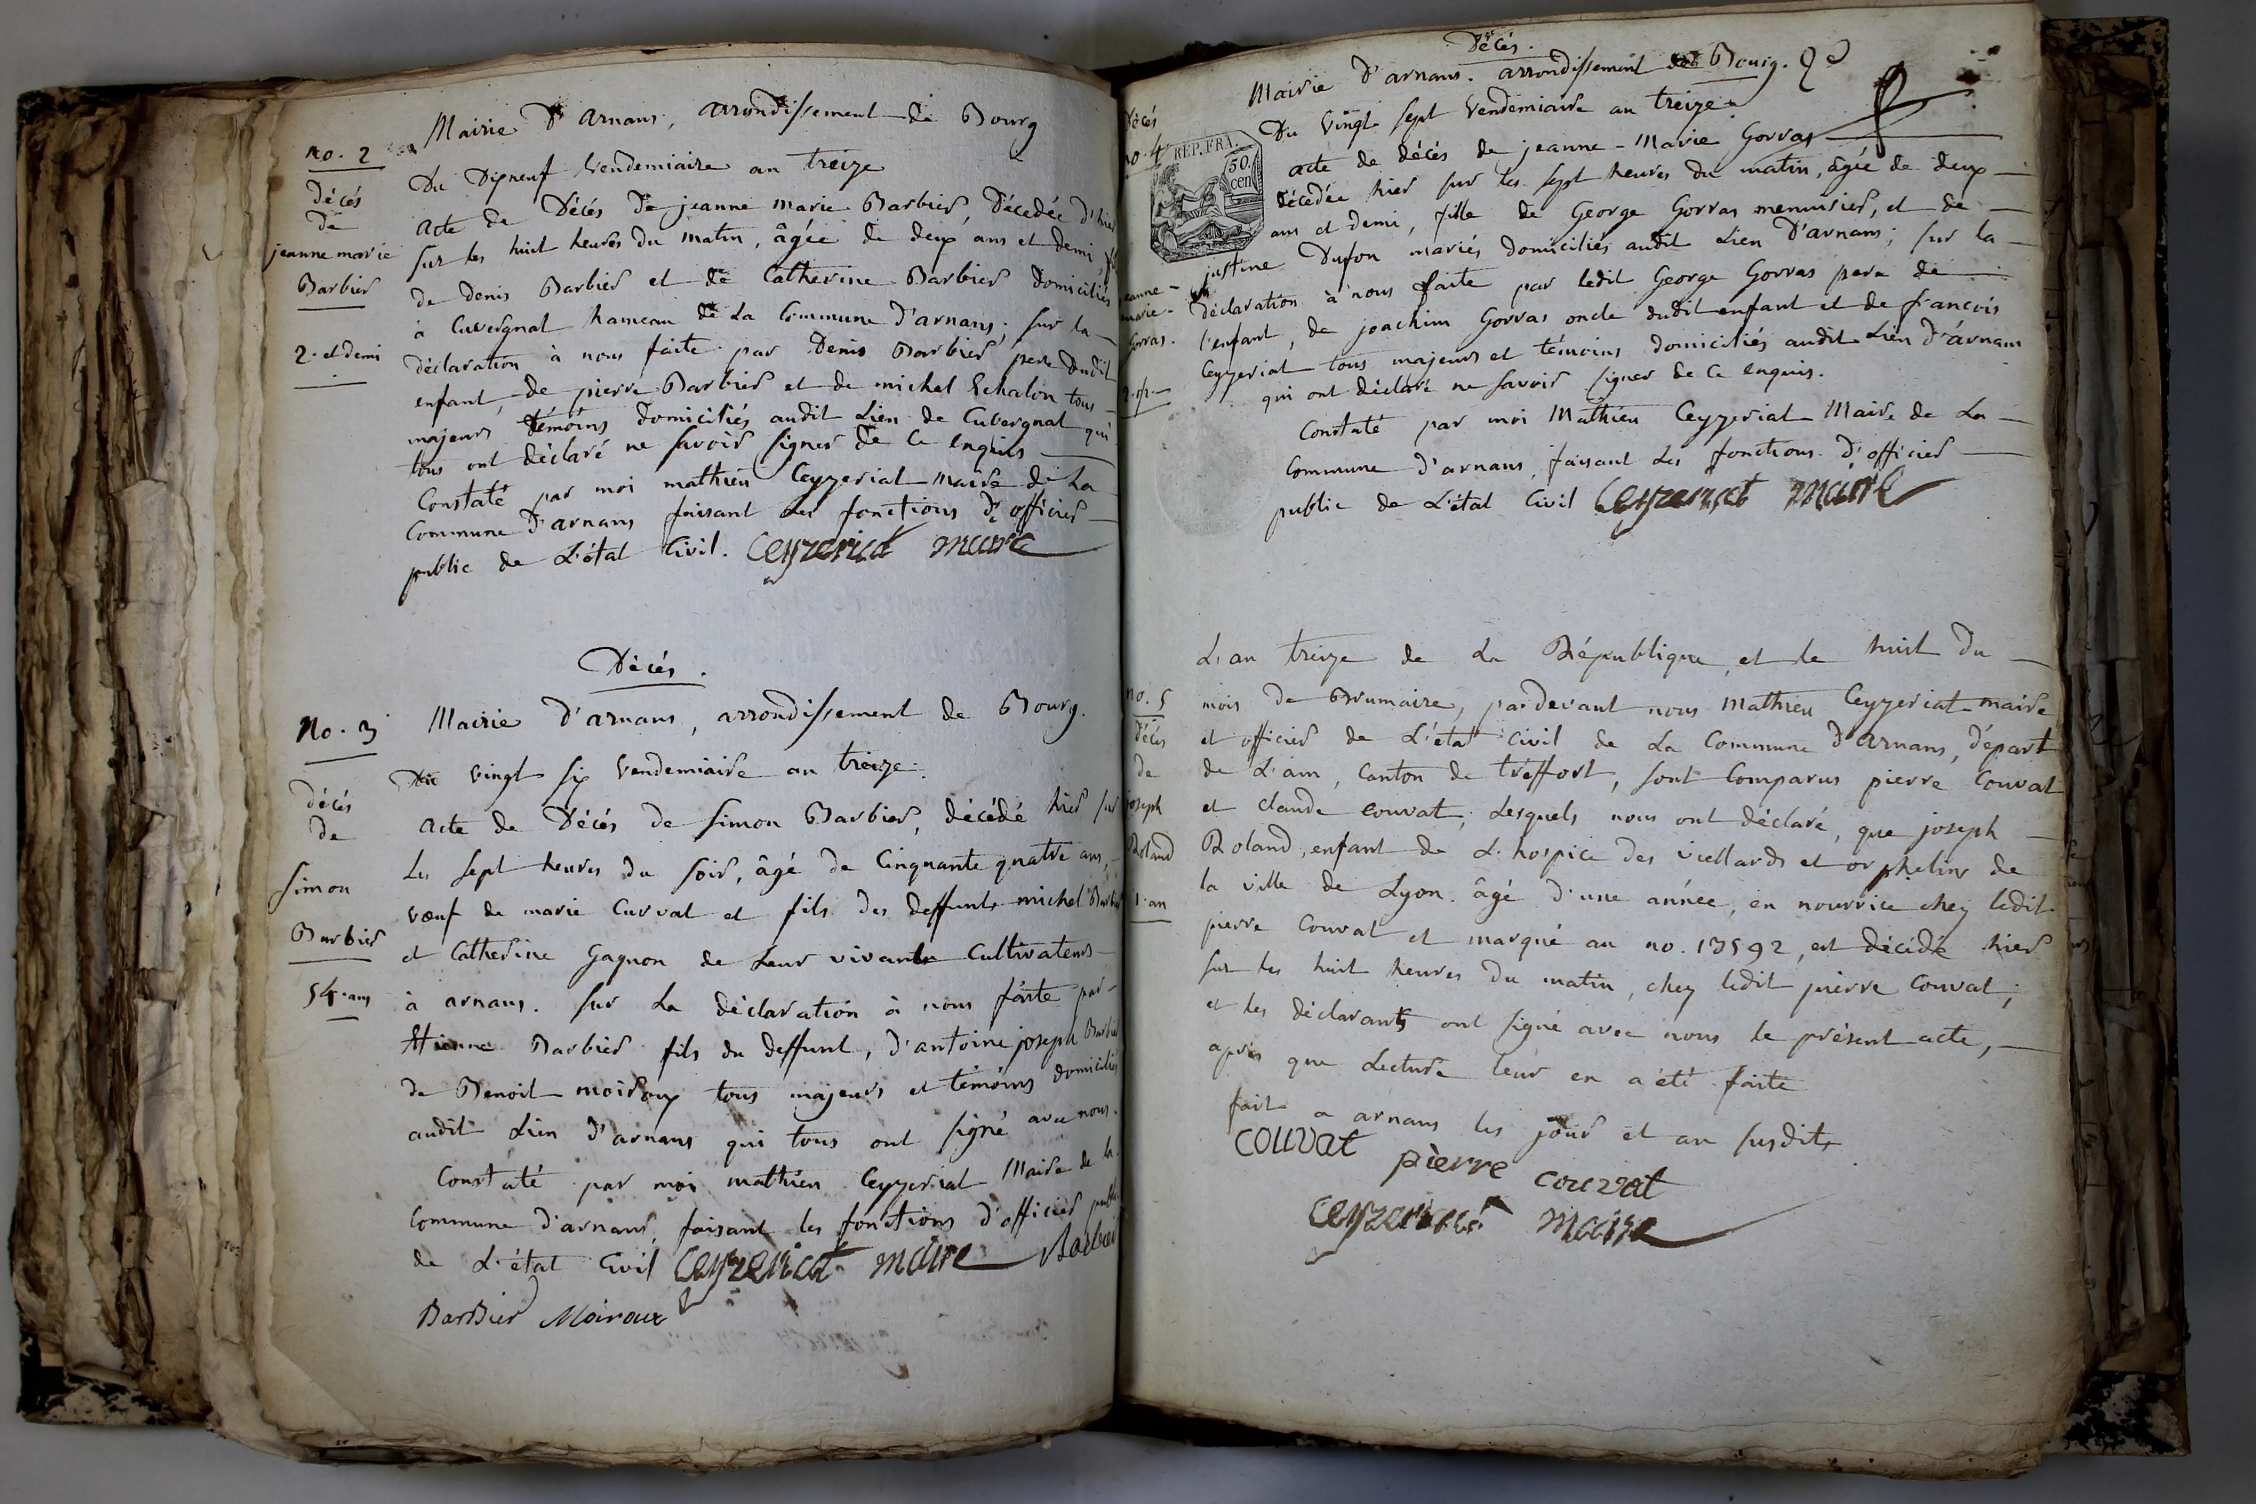 Mairie D'arnans, arrondissement de Bourg
no. 2
Du Dixneuf Vendemiaire an treize
décés
de
jeanne marie
Barbier
2. et demi
acte de Décés de jeanne marie Barbier, Décedée d'hier
sur les huit heures du matin, âgée de deux ans et demi,
de denis Barbier et de Catherine Barbier domiciliés
à Cuvergnat hameau de La Commune d'arnans; sur la
déclaration à nous faite par Denis Barbier pere dudit
enfant, de pierre Barbier et de michel Echalon tous
majeurs témoins domiciliés audit Lieu de Cuvergnat qui
tous ont déclaré ne savoir signer de Ce enquis
Constaté par moi mathieu Ceyzeriat maire de La
Commune D'arnans faisant les fonctions d'officier
public de L'état Civil. Ceyzeriat maire
Décés.
No. 3
Mairie D'arnans, arrondissement de Bourg.
Du vingt six Vendemiaire an treize.
décés
de
simon
Barbier
54. ans
acte de Décés de simon Barbier, décédé hier sur
Les sept heures du soir, âgé de Cinquante quatre ans,
vœuf de marie Curvat et fils des deffunts michel Barbier
et Catherine Gagnon de Leur vivants Cultivateurs
à arnans. sur La déclaration à nous faite par
Etienne Barbier fils du deffunt, d'antoine joseph Barbier
de Benoit moiroux tous majeurs et témoins domiciliés
audit Lieu d'arnans qui tous ont signé avec nous.
Constaté par moi mathieu Ceyzeriat Maire de la
Commune d'arnans, faisant les fonctions d'officier public
de L'état Civil Ceyzeriat maire Barbier
BarBier Moiroux
Décés.
Mairie D'arnans. arrondissement de Bourg.
Décés
no. 4
REP. FRA.
50.
cen
jeanne-
marie-
Gorras.
Du Vingt sept Vendemiaire an treize
acte de décés de jeanne-Marie Gorras
décédée hier sur les sept heures du matin, âgée de deux
ans et demi, fille de George Gorras menuisier, et de
justine Dufou mariés domiciliés audit Lieu D'arnans; sur la
déclaration à nous faite par ledit George Gorras pere de
l'enfant, de joachim Gorras oncle dudit enfant et de francois
Ceyzeriat tous majeurs et témoins domiciliés audit Lieu d'arnans
qui ont déclaré ne savoir signer de Ce enquis.
Constaté par moi Mathieu Ceyzeriat Maire de La
Commune d'arnans, faisant Les fonctions d'officier
public de L'état Civil Ceyzeriat maire
L'an treize de La République et le huit Du
no. 5
Décés
de
joseph
Roland
1. an
mois de Brumaire, pardevant nous Mathieu Ceyzeriat maire
et officier de L'état Civil de La Commune d'arnans, départ
de L'ain, Canton de tréffort, sont Comparus pierre Couvat
et claude couvat, Lesquels nous ont déclaré, que joseph
Roland, enfant de L'hospice des viellards et orphelins de
la ville de Lyon. âgé d'une année, en nourrice chez ledit
pierre Couvat et marqué au no. 13592, est décédé hier
sur les huit heures du matin, chez ledit pierre Couvat;
et les déclarants ont signé avec nous le présent acte,
après que Lecture leur en a été faite
fait a arnans les jour et an susdits
couvat pierre couvat
Ceyzeriat maire